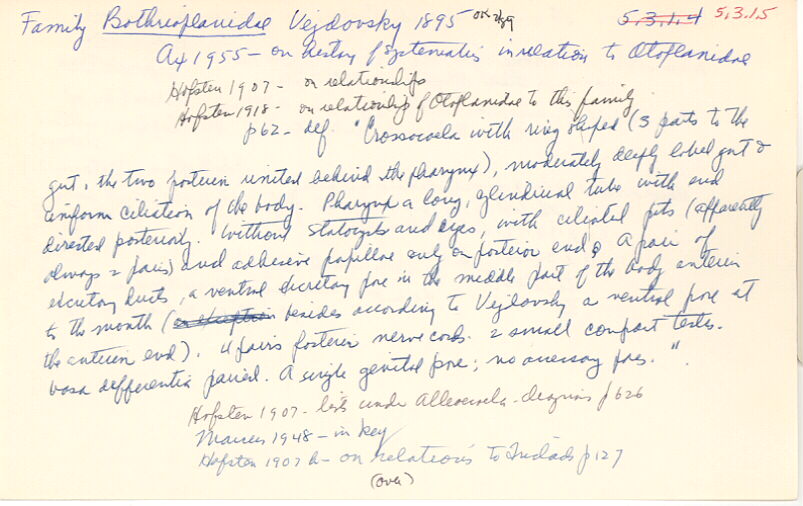 Family Bothrioplanidae Vejdovsky 1895 5.3.1.4 5.3.1.5
Ax 1955 - on history of systematics in relation to Otoplanidae
Hofsten 1907 - on relationships
Hofsten 1918 - on relationship of Otoplanidae to this family
p62 - def. "Crossocoela with ring shaped (3 parts to the
gut, the two posterior united behind the pharynx), moderately deeply lobed gut &
uniform ciliation of the body. Pharynx a long, cylindrical tube with end
directed posteriorly. Without statocysts and eyes, with ciliated pits (apparently
always 2 pairs) and adhesive papillae only on posterior end. A pair of
excretory ducts, a ventral excretory pore in the middle part of the body anterior
to the mouth (besides according to Vejdovsky a ventral pore at
the anterior end). 4 pairs posterior nerve cords. 2 small compact testes.
vasa defferentia paired. A single genital pore; no accessory pores."
Hofsten 1907 - lists under Alloeocoela - diagnosis p626
Marcus 1948 - in key
Hofsten 1907 A - on relations to Triclads p127
(over)